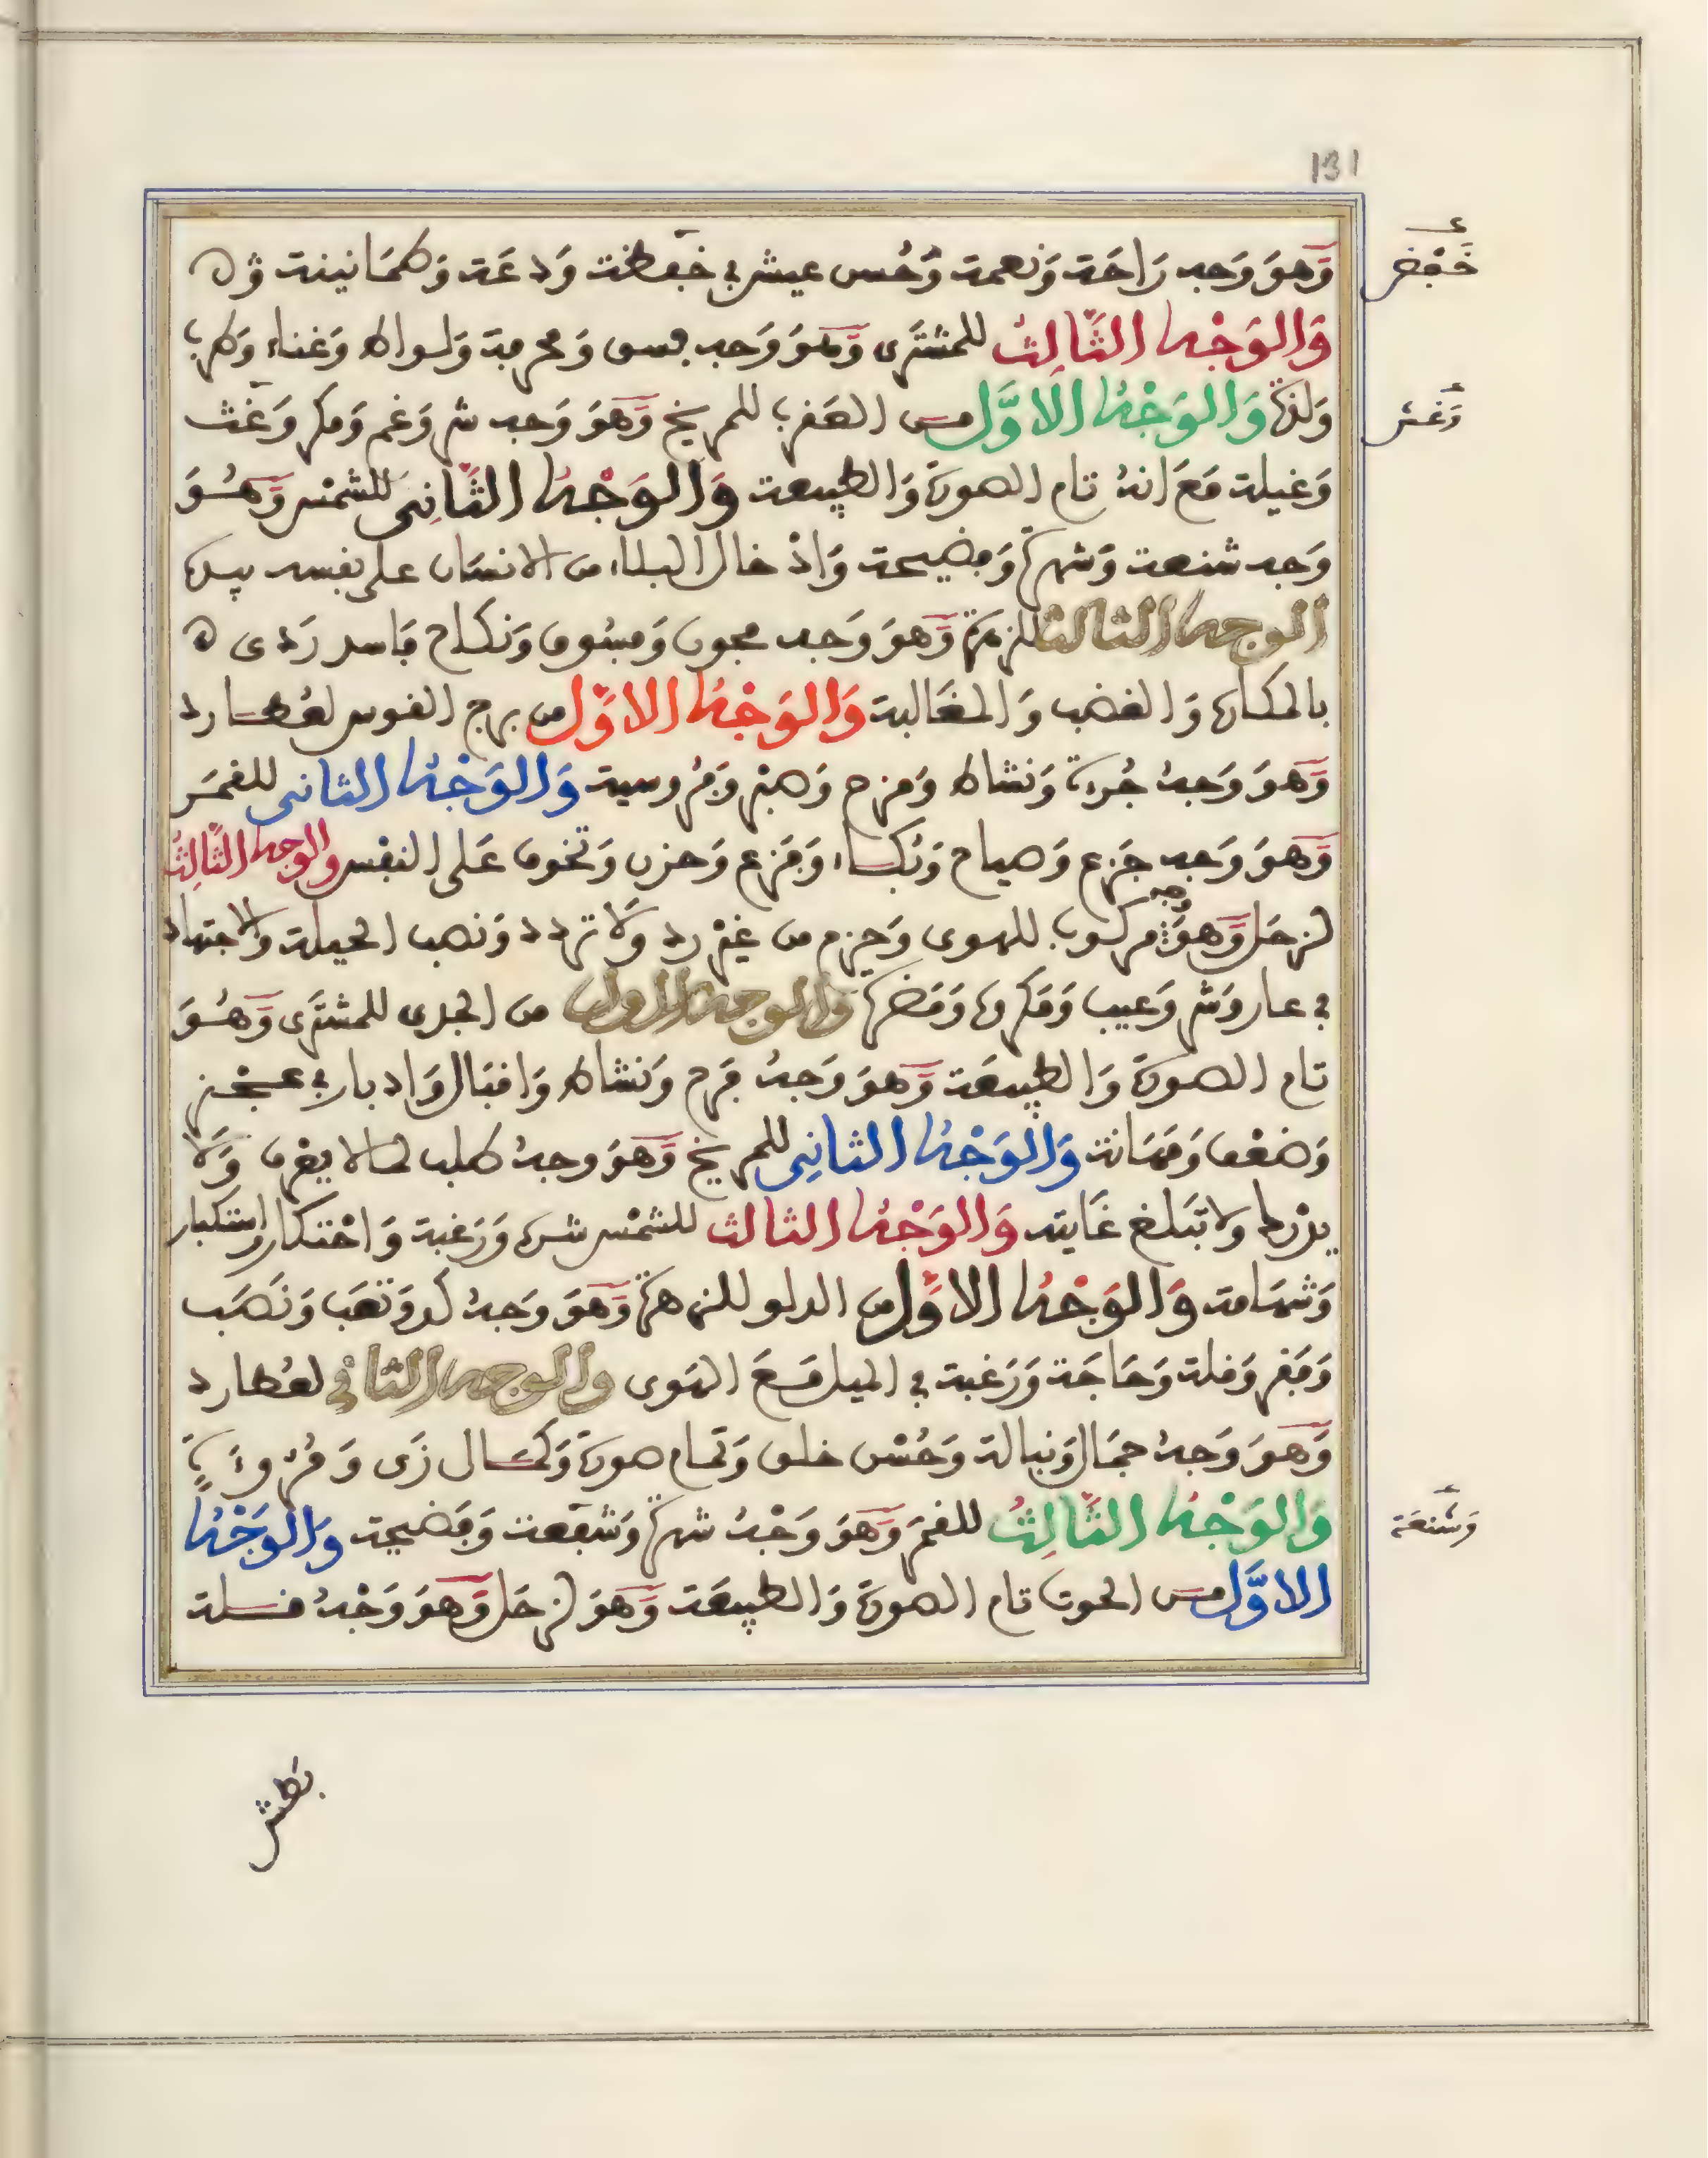 131
وَهوَ وَجه رَاحَة وَنعمة وَحُسن عيش في خفظة وَدعَة وَطمَانينة وَ
خَفْض
وَالوَجْهُ الثَّالِثُ للمشتَرى وَهوَ وَجه فسق وَمحرمة وَلواط وَغناء وَطرب
وَلذة وَالوَجْهُ الاوَّل مـن العَقرب للمريخ وَهوَ وَجه شر وَغم وَمكر وَغث
وَغش
وَغيلة مَعَ انهُ تام الصورة وَالطبيعة وَالوَجْهُ الثَّانِى للشمْس وَهُـوَ
وَجه شنعة وَشهرة وَفضيحة وَاذْخال البلاء من الانسَان على نفسه بيده
الوجه الثالث للزهرَة وَهوَ وَجه مجون وَفسُوق وَنكاح فاسد رَدى
بالمكابرة وَالغضب وَالمغَالبة وَالوَجْهُ الاوَّل من برج القوس لعُطـارد
وَهوَ وَجهُ جُرءة وَنشاط وَمزح وَهتر وَفروسية وَالوَجْهُ الثانى للقمَر
وَهوَ وَجه جَزع وَصياح وَبُكـاء وَفَزع وَحزن وَتخوف عَلى النفْس والوجه الثَّالِثُ
لزحَل وَهوَ وجه مركوب للهوى وَحزم من غيْر رد وَلا تردد وَنصب الحيلة وَالاجتهاد
في عار وَشر وَعيب وَمَكروه وَمَضرة وَالوجه الاول من الجدى للمشتَرى وَهُـوَ
تام الصورة وَالطبيعَة وَهوَ وَجهُ فَرح وَنشاط وَاقبَال وَادبار في عـجْـز
وَضعْف وَمَهَانة وَالوَجْهُ الثانِى للمريخ وَهوَ وجهُ طلب لما لا يعْرف وَلا
يدْرك ولا تبَلغ غَايته وَالوَجْهُ الثالث للشمْس شره وَرَغبة وَاحْتكار واستكبار
وَشهَامة وَالوَجْهُ الاوَّل من الدلو للزهرة وَهوَ وَجهُ كد وَتعَب وَنَصَب
وَفَقر وَقلة وَحَاجَة وَرَغبة في الميل مَـعَ الهَوى والوجه الثاني لعُطارد
وَهوَ وَجهُ جمَال وَنبالة وَحُسْن خلق وَتمام صورة وَكمـال زَى وَمُروءَة
وَالوَجْهُ الثَّالِثُ للقمَر وَهوَ وَجْهُ شهرة وَشقعة وَفَضيحة وَالوَجْهُ
وَشُنعَة
الاوَّل مـن الحوت تام الصورة وَالطبيعَة وَهوَ لزحَل وَهوَ وَجْهُ قـلة
بطش